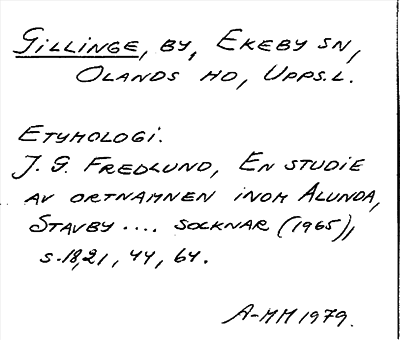 Gillinge, by, Ekeby sn,
Olands hd, Upps.l.
Etymologi.
J. G. Fredlund, En studie
av ortnamnen inom Alunda,
Stavby .... socknar (1965),
s. 18, 21, 44, 64.
A-MM 1979.